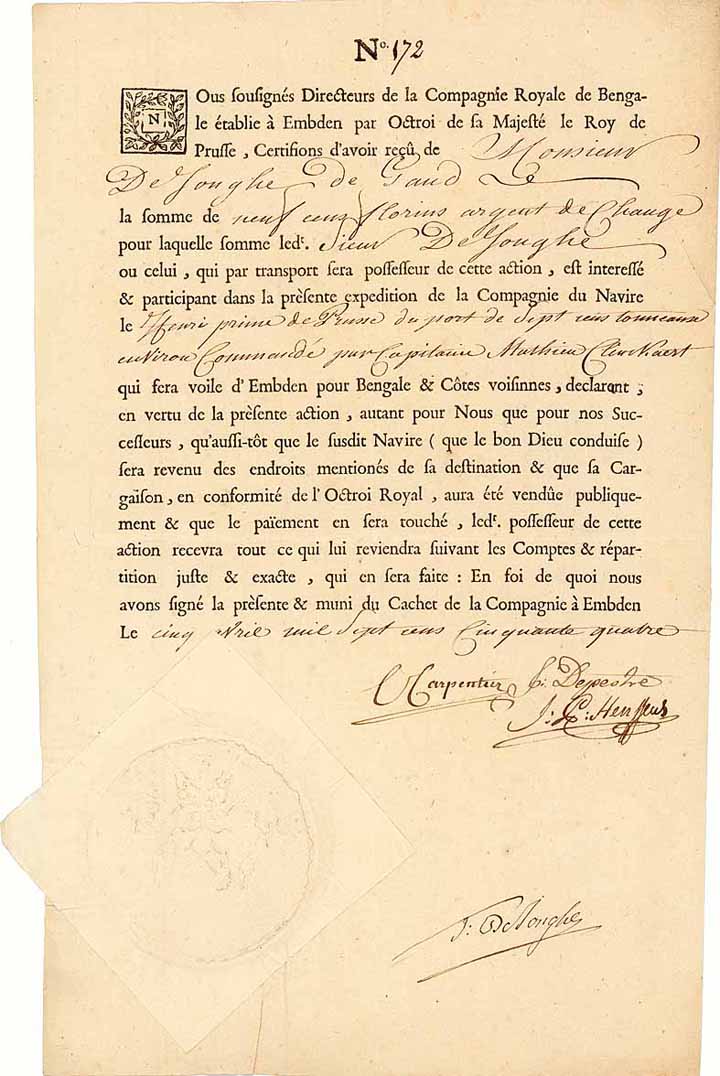 No. 172
NOus souſignés Directeurs de la Compagnie Royale de Benga-
le établie à Embden par Octroi de ſa Majeſté le Roy de
Pruſſe, Certifions d'avoir reçû de Monsieur
De Jonghe de Gand Le
la ſomme de neuf cens florins argent de Change
pour laquelle ſomme ledr. Sieur De Jonghe
ou celui, qui par transport ſera poſſeſſeur de cette action, eſt intereſſé
& participant dans la prèſente expedition de la Compagnie du Navire
le Henri prince de Prusse du port de Sept cens tonneaux
environ Commandé par Capitaine Mathieu
qui fera voile d'Embden pour Bengale & Côtes voiſinnes, declarant;
en vertu de la prèſente action, autant pour Nous que pour nos Suc-
ceſſeurs, qu'auſſi-tôt que le ſusdit Navire (que le bon Dieu conduiſe)
ſera revenu des endroits mentionés de ſa deſtination & que ſa Car-
gaiſon, en conformité de l'Octroi Royal, aura été vendûe publique-
ment & que le païement en ſera touché, ledr. poſſeſſeur de cette
action recevra tout ce qui lui reviendra ſuivant les Comptes & répar-
tition juſte & exacte, qui en ſera faite: En foi de quoi nous
avons ſigné la prèſente & muni du Cachet de la Compagnie à Embden
Le cinq Avril mil Sept cens Cinquante quatre
Carpentier Depestre
J: De Jonghe